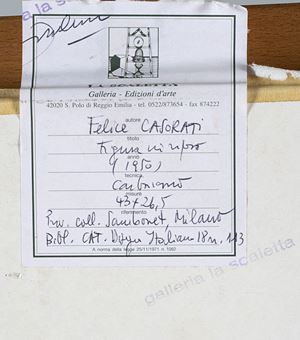 la scaletta
LA SCALETTA
Galleria - Edizioni d'arte
42020 S. Polo di Reggio Emilia - tel. 0522/873654 - fax 874222
autore
Felice CASORATI
titolo
Figura in riposo
anno
(1950)
tecnica
Carboncino
misure
43 x 26,5
riferimento
Prov. coll. Sambonet, Milano
Bibl. CAT. Disegno Italiano 18 n. 113
A norma della legge 20/11/1971 n. 1062
galleria la scaletta
galleria la scaletta